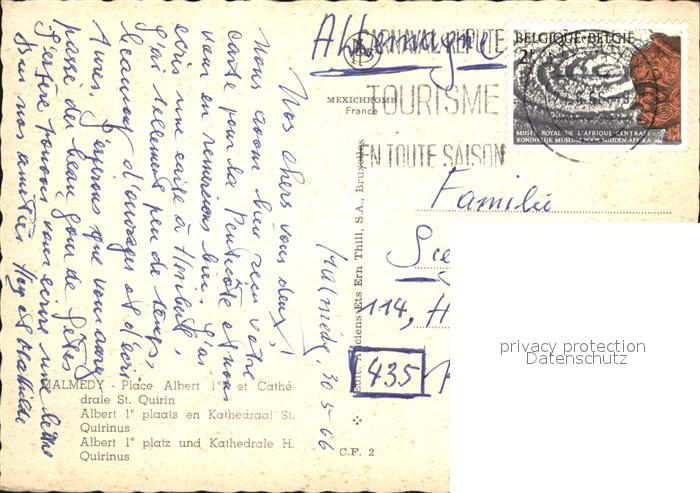 Allemagne
CARNAVAL REPUTE
TOURISME
EN TOUTE SAISON
BELGIQUE·BELGIË
2F
MUSEE ROYAL DE L'AFRIQUE CENTRALE
KONINKLIJK MUSEUM VOOR MIDDEN-AFRIKA
MEXICHROME
France
Malmédy, 30-5-66
Nos chers vous deux,
Nous avons bien reçu votre
carte pour la Pentecôte et nous
vous en remercions bien. J'ai
écris une carte à
J'ai tellement peu de temps,
beaucoup d'ouvrages et d'écri
tures. J'espère que vous avez
passé de beau jour de fêtes
J'espère pouvoir vous écrire une lettre
nos amitiés et Mathilde
Edit. Anciens Ets Ern Thill, S.A., Bruxelles
Familie
114, H
435
MALMEDY - Place Albert 1er et Cathé-
drale St. Quirin
Albert 1e plaats en Kathedraal St.
Quirinus
Albert 1e platz und Kathedrale H.
Quirinus
C.F. 2
privacy protection
Datenschutz